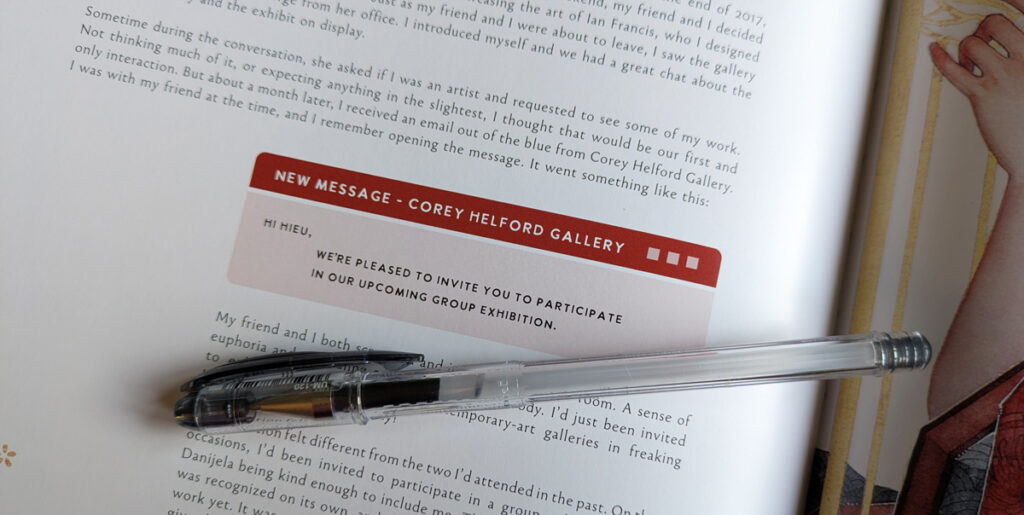 end of 2017,
my friend and I decided
casing the art of Ian Francis, who I designed
just as my friend and I were about to leave, I saw the gallery
from her office. I introduced myself and we had a great chat about the
and the exhibit on display.
Sometime during the conversation, she asked if I was an artist and requested to see some of my work.
Not thinking much of it, or expecting anything in the slightest, I thought that would be our first and
only interaction. But about a month later, I received an email out of the blue from Corey Helford Gallery.
I was with my friend at the time, and I remember opening the message. It went something like this:
NEW MESSAGE - COREY HELFORD GALLERY
HI HIEU,
WE'RE PLEASED TO INVITE YOU TO PARTICIPATE
IN OUR UPCOMING GROUP EXHIBITION.
My friend and I both
euphoria and
room. A sense of
I'd just been invited
temporary-art galleries in freaking
felt different from the two I'd attended in the past. On
occasions, I'd been invited to participate in a group
Danijela being kind enough to include me.
was recognized on its own
work yet. It was
UM-120